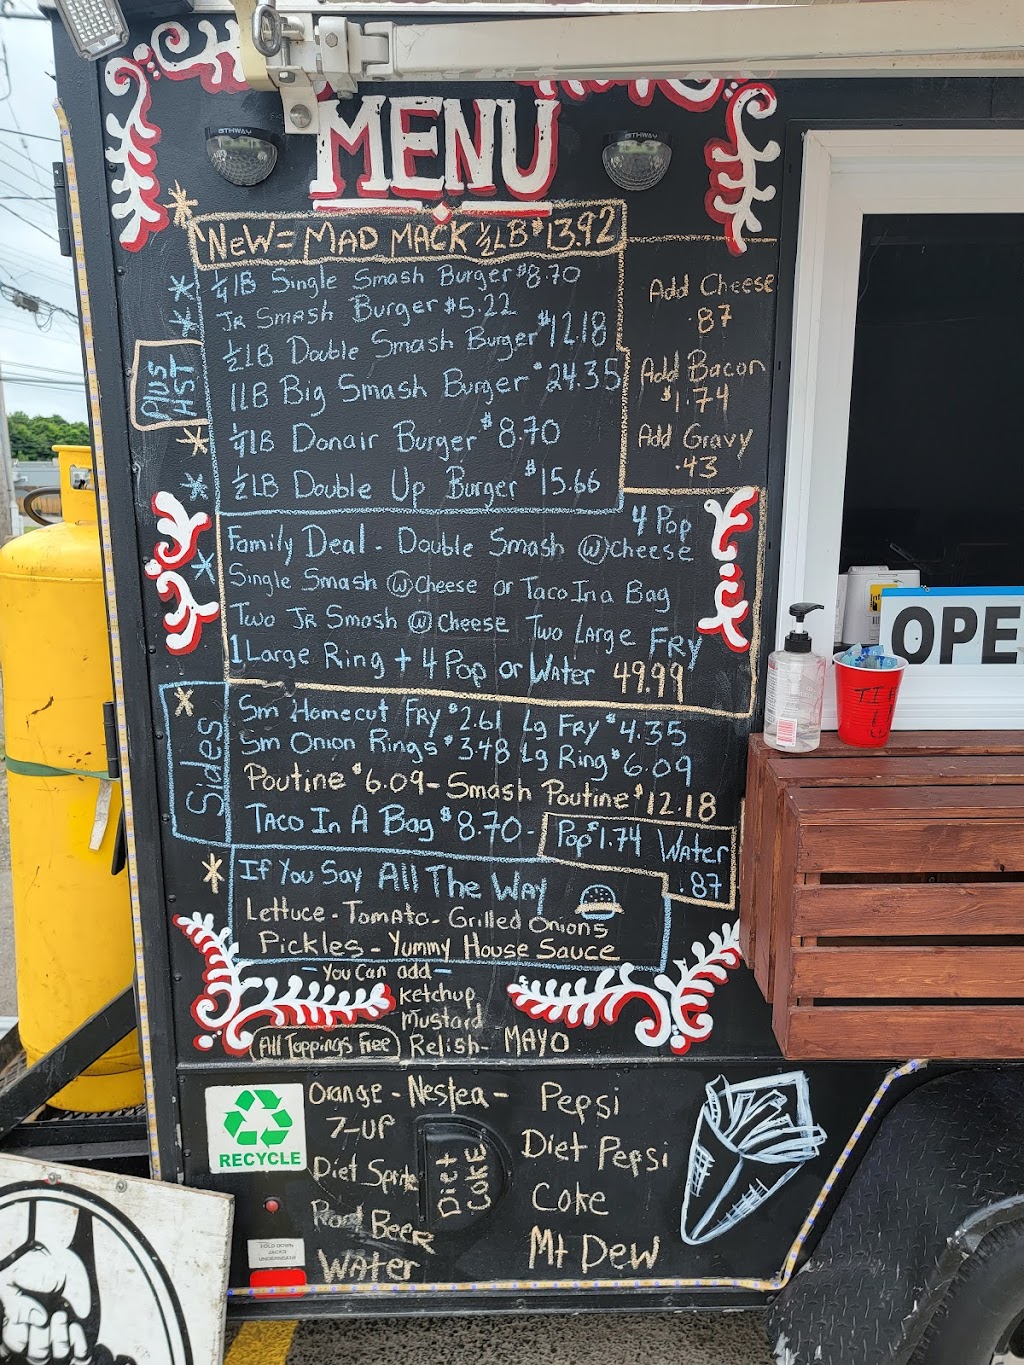 MENU
NEW = MAD MACK 1/2 LB $13.92
1/4 lB Single Smash Burger $8.70
JR SMASH Burger $5.22
1/2 LB Double Smash Burger $12.18
1LB Big Smash Burger $24.35
1/4 lB Donair Burger $8.70
1/2 LB Double Up Burger $15.66
Plus
HST
Add Cheese
.87
Add Bacon
$1.74
Add Gravy
.43
4 Pop
Family Deal - Double Smash @ cheese
Single Smash @ cheese or Taco In a Bag
Two JR Smash @ cheese Two Large FRY
1 Large Ring + 4 Pop or Water 49.99
Sides
Sm Homecut FRY $2.61 Lg FRY $4.35
Sm Onion Rings $3.48 Lg Ring $6.09
Poutine $6.09 - Smash Poutine $12.18
TACO In A Bag $8.70 -
Pop $1.74 Water
.87
If You Say All The Way
Lettuce - Tomato - Grilled Onions
Pickles - Yummy House Sauce
- You Can add -
ketchup
mustard
All Toppings Free Relish - MAYO
RECYCLE
Orange - Nestea -
7-UP
Diet Sprite
Root Beer
Water
Diet
Coke
Pepsi
Diet Pepsi
Coke
Mt Dew
OPE
TIP
HOLD DOWN
JACKS
UNDERNEATH